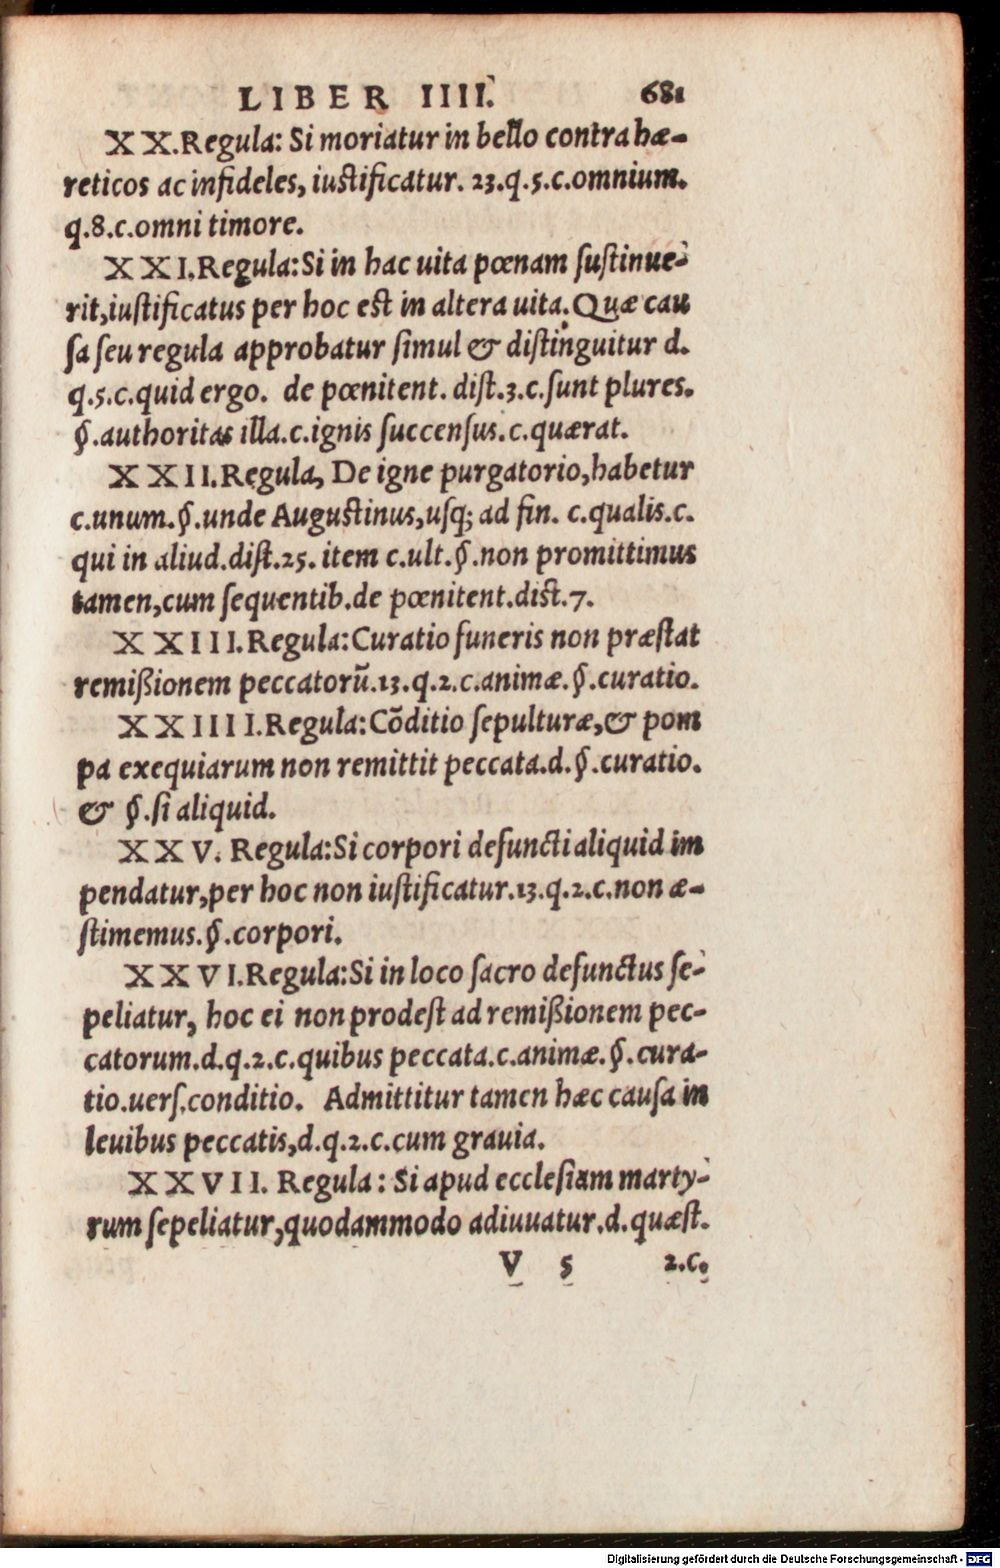 LIBER IIII. 681
XX.Regula: Si moriatur in bello contra hæ-
reticos ac infideles, iustificatur. 23.q.5.c.omnium.
q.8.c.omni timore.
XXI.Regula: Si in hac uita pœnam ſuſtinue-
rit,iuſtificatus per hoc est in altera uita. Quæ cau
ſa ſeu regula approbatur ſimul & diſtinguitur d.
q.5.c.quid ergo. de pœnitent. diſt.3.c.ſunt plures.
§.authoritas illa.c.ignis ſuccenſus.c.quærat.
XXII.Regula, De igne purgatorio,habetur
c.unum.§.unde Augustinus,uſq; ad fin. c.qualis.c.
qui in aliud.diſt.25. item c.ult.§.non promittimus
tamen,cum ſequentib.de pœnitent.dist.7.
XXIII.Regula: Curatio funeris non præſtat
remißionem peccatorũ.13.q.2.c.animæ.§.curatio.
XXIIII.Regula: Cõditio ſepulturæ,& pom
pa exequiarum non remittit peccata.d.§.curatio.
& §.ſi aliquid.
XXV. Regula: Si corpori defuncti aliquid im
pendatur,per hoc non iuſtificatur.13.q.2.c.non æ-
ſtimemus.§.corpori.
XXVI.Regula: Si in loco ſacro defunctus ſe-
peliatur, hoc ei non prodeſt ad remißionem pec-
catorum.d.q.2.c.quibus peccata.c.animæ.§.cura-
tio.uerſ.conditio. Admittitur tamen hæc cauſa in
leuibus peccatis,d.q.2.c.cum grauia.
XXVII. Regula: Si apud eccleſiam marty-
rum ſepeliatur,quodammodo adiuuatur.d.quæſt.
V 5 2.c.
Digitalisierung gefördert durch die Deutsche Forschungsgemeinschaft - DFG